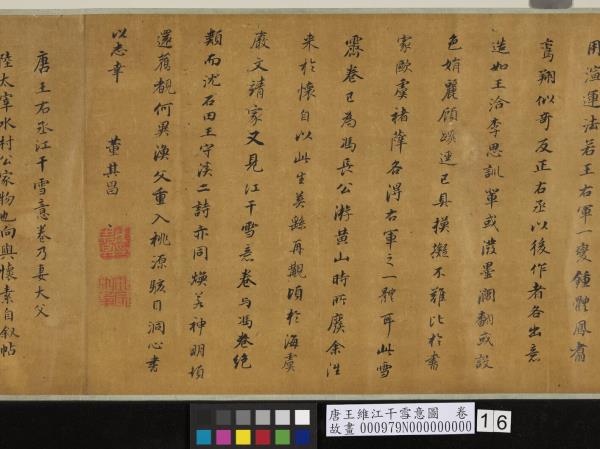 用渲運法若王右軍一變鍾體鳳翥
鸞翔似奇反正右丞以後作者各出意
造如王洽李思訓輩或潑墨瀾翻或設
色娟麗顧蹊逕已具模擬不難比於書
家歐虞褚薛各得右軍之一體耳此雪
霽卷已為馮長公游黃山時所廢余往
來於懷自以此生莫繇再覯頃於海虞
嚴文靖家又見江干雪意卷與馮卷絕
類而沈石田王守溪二詩亦同煥若神明頓
還舊觀何異漁父重入桃源駭目洞心書
以志幸
董其昌
唐王右丞江干雪意卷乃妻大父
陸太宰水村公家物也向與懷素自敘帖
唐王維江干雪意圖 卷
故畫 000979N000000000
16